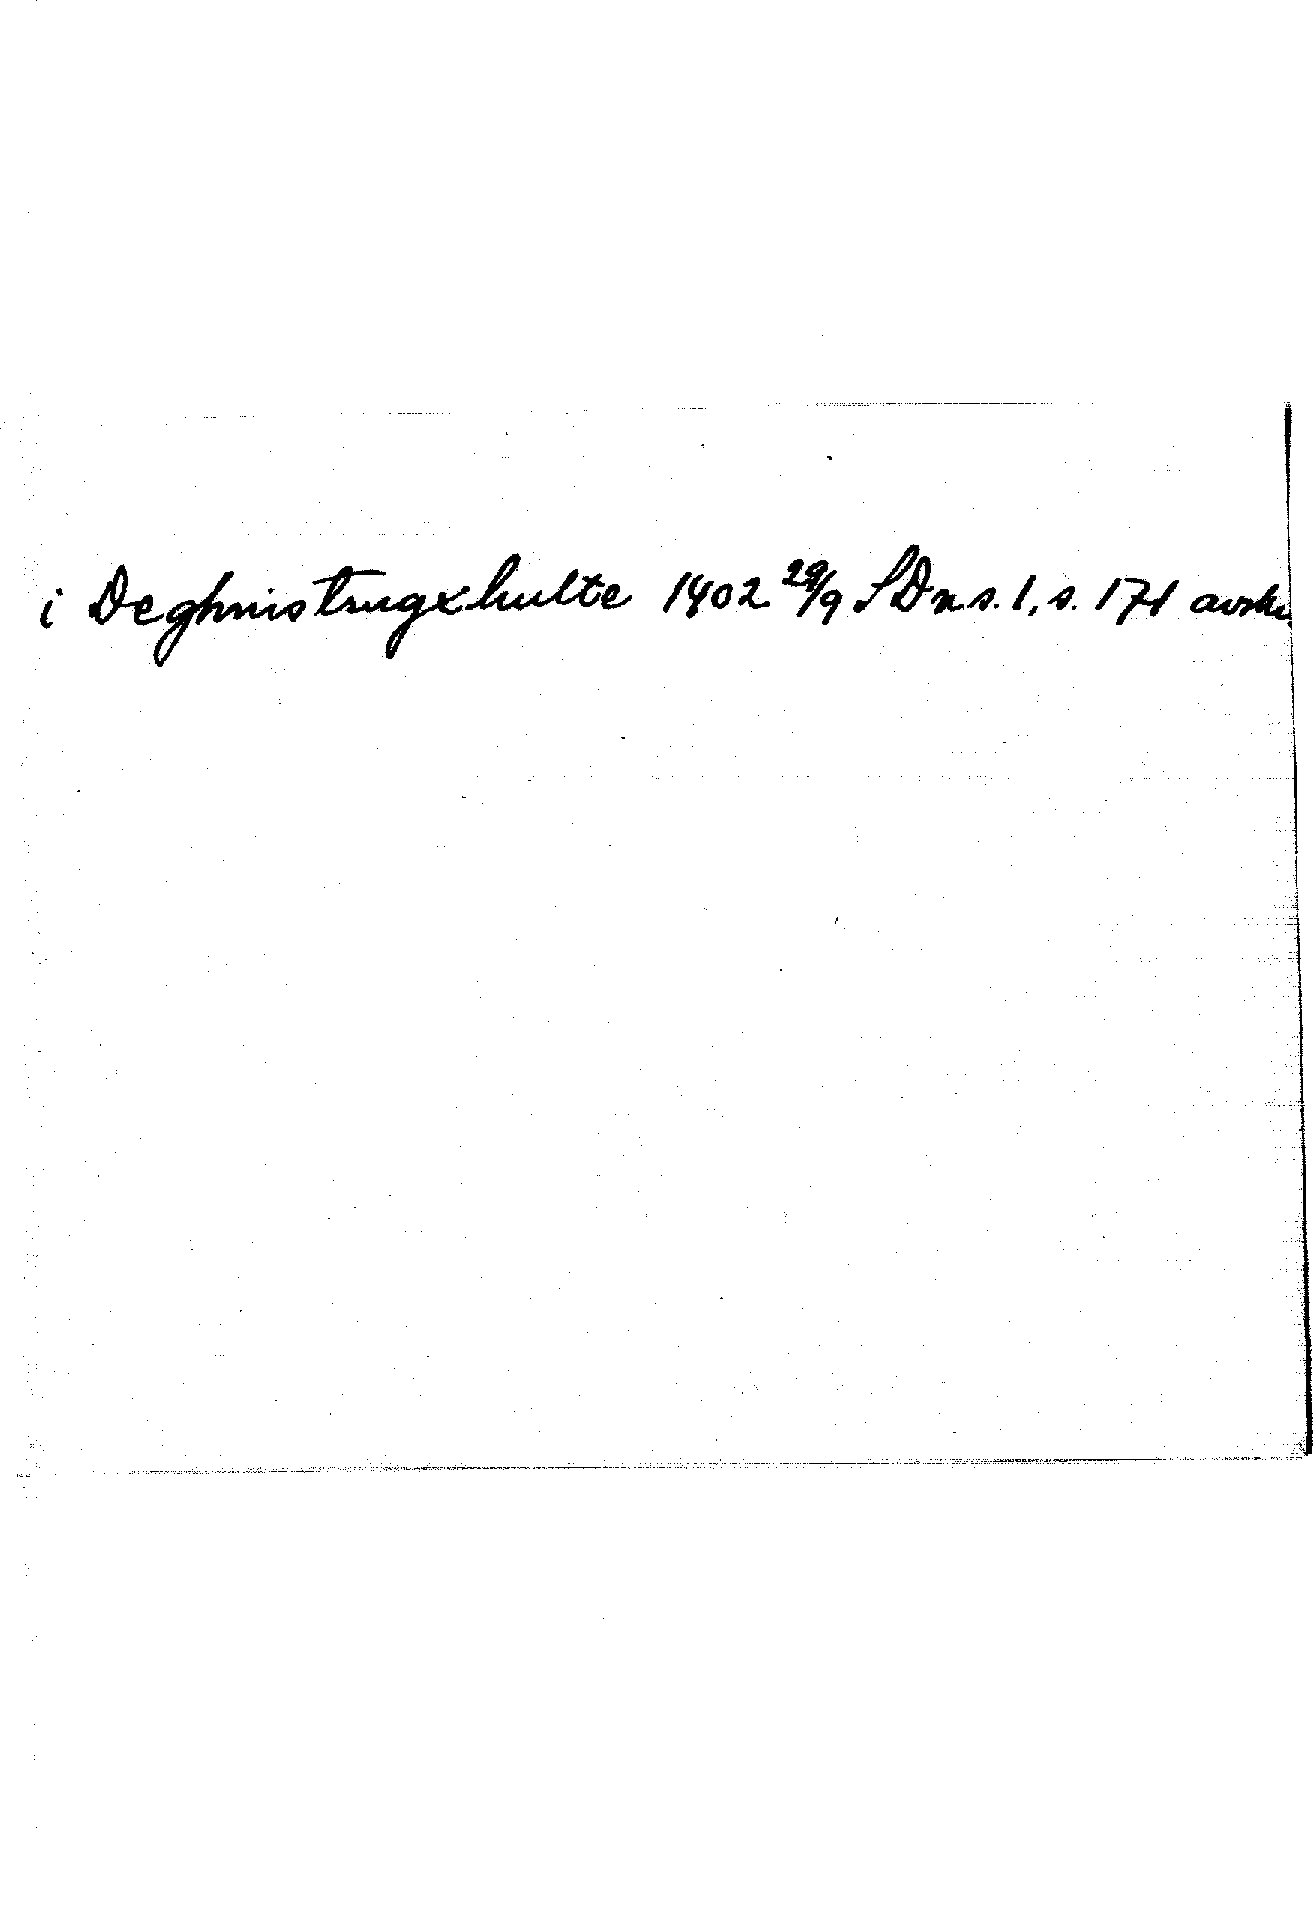 i Deghnistrugxhulte 1402 29/9 SDns. 1, s. 171 avskr.